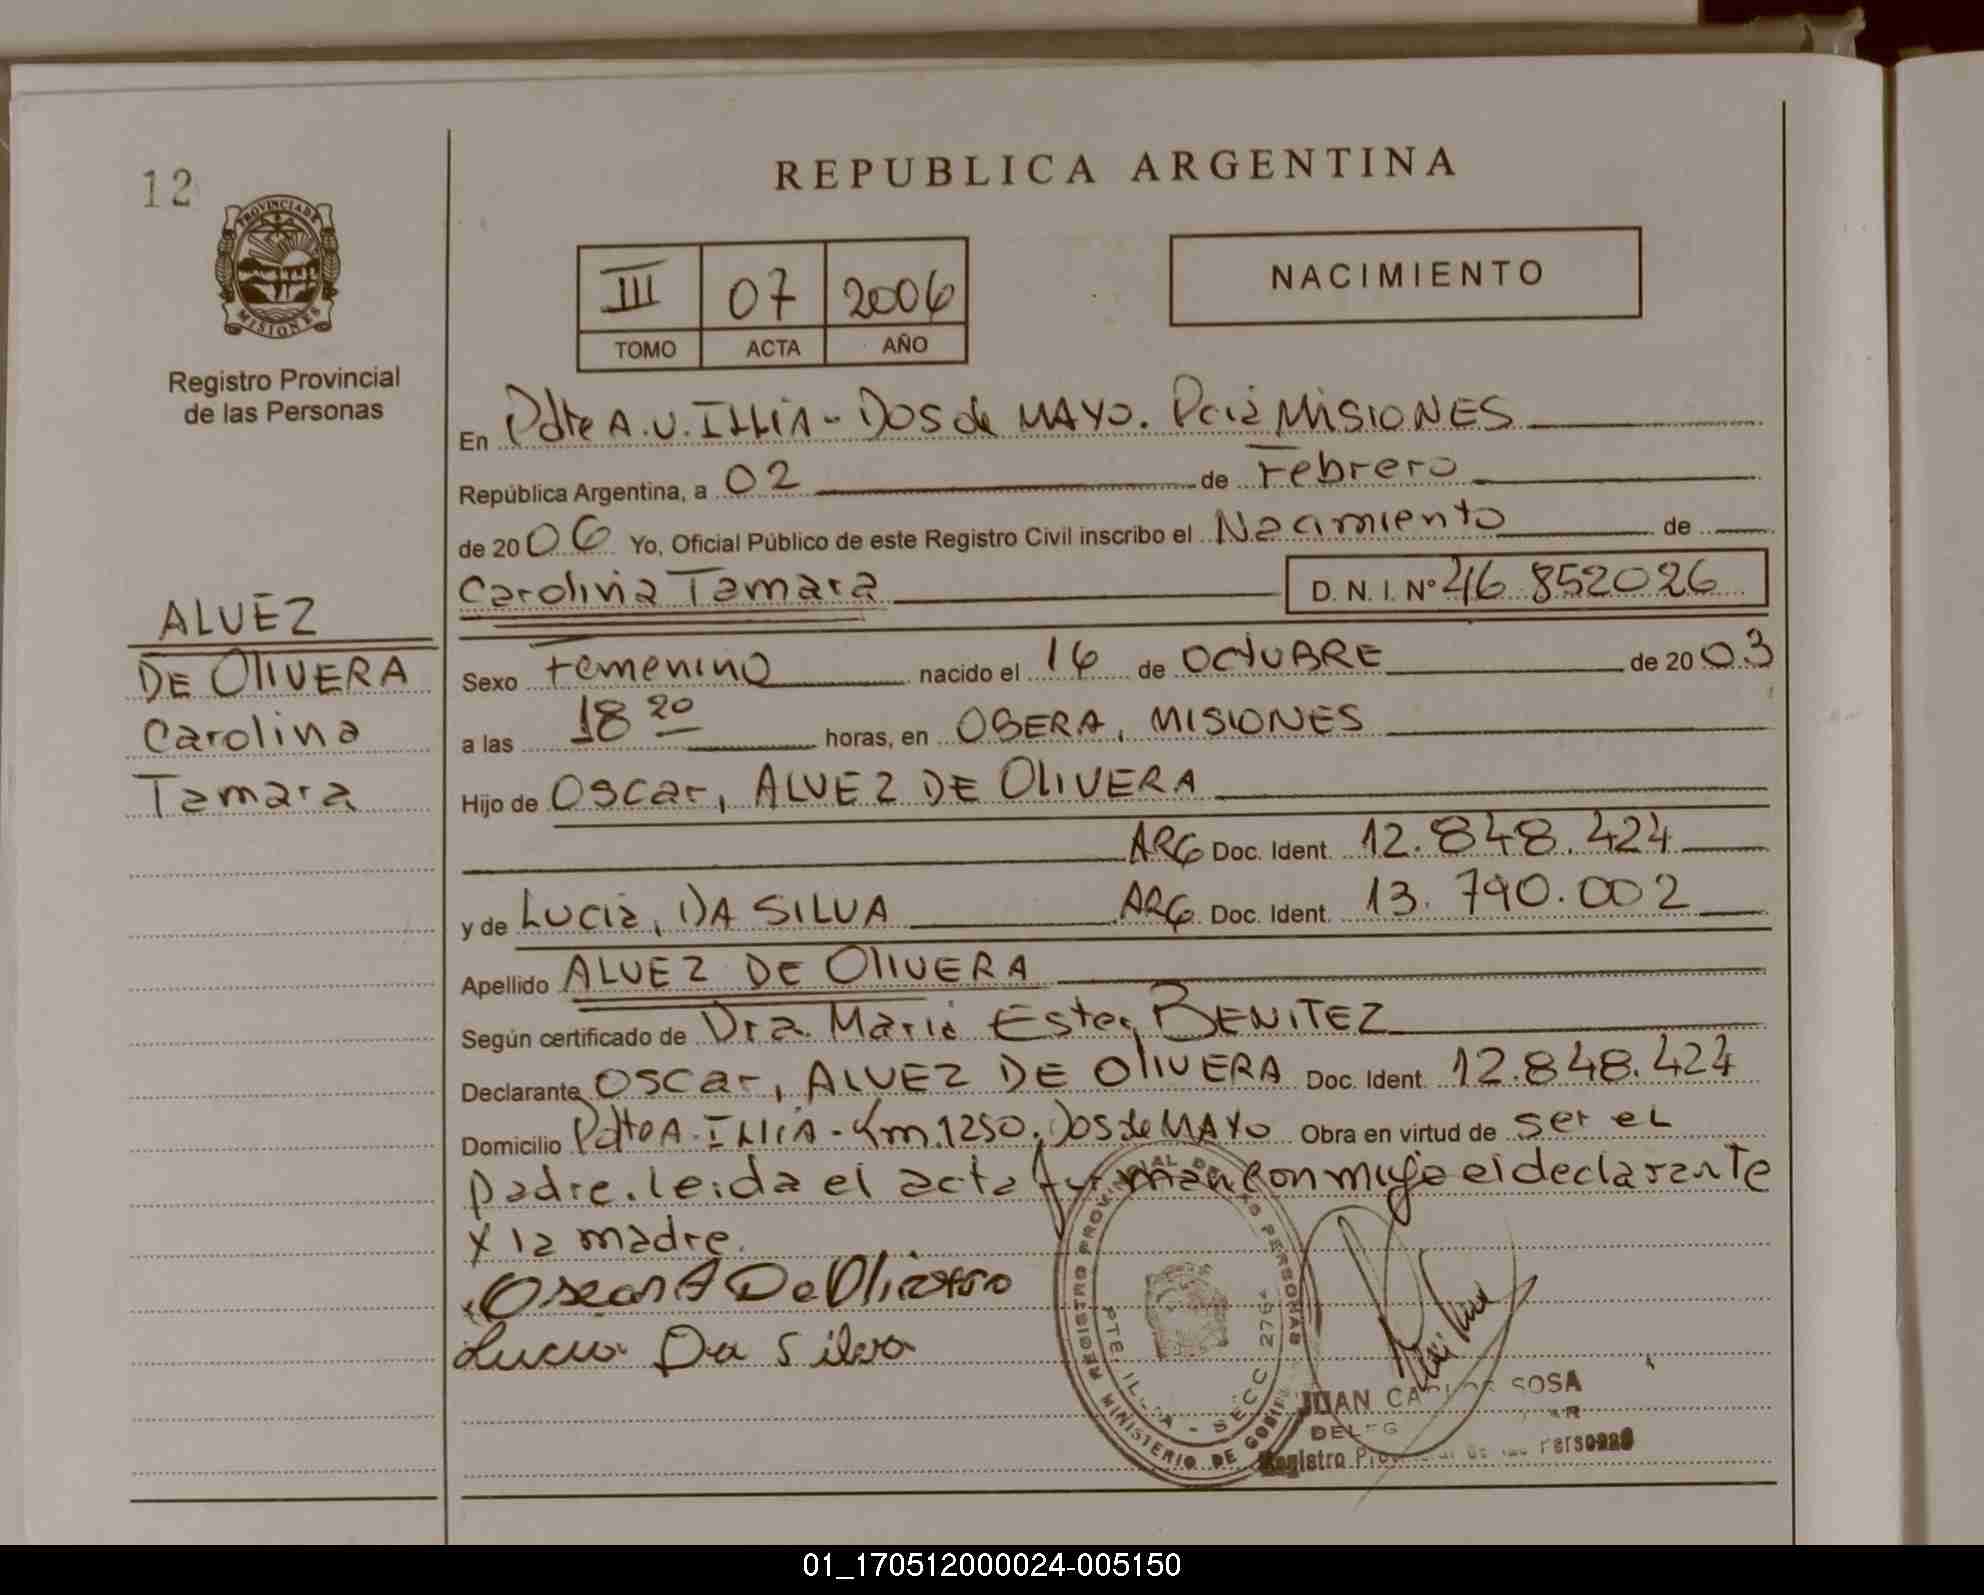 12
REPUBLICA ARGENTINA
PROVINCIA DE
MISIONES
Registro Provincial
de las Personas
III 07 2006
TOMO ACTA AÑO
NACIMIENTO
En Pdte A.U. ILLIA - DOS de MAYO. Pcia MISIONES
República Argentina, a 02 de Febrero
de 2006 Yo, Oficial Público de este Registro Civil inscribo el Nacimiento de
Carolina Tamara D. N. I. Nº 46 852026
ALVEZ
DE OLIVERA
Carolina
Tamara
Sexo Femenino nacido el 16 de OCTUBRE de 2003
a las 18 20 horas, en OBERA, MISIONES
Hijo de Oscar, ALVEZ DE OLIVERA
ARG Doc. Ident. 12.848.424
y de Lucia, DA SILVA ARG. Doc. Ident. 13.790.002
Apellido ALVEZ DE OLIVERA
Según certificado de Dra. Maria Ester BENITEZ
Declarante Oscar, ALVEZ DE OLIVERA Doc. Ident. 12.848.424
Domicilio Pdte A. ILLIA - Km.1250. Dos de MAYO Obra en virtud de ser el
padre. leida el acta firman con migo el declarante
y la madre.
Oscar A De
Lucia Da Silva
REGISTRO PROVINCIAL DE LAS PERSONAS
MINISTERIO DE
PTE. ILLIA - SECC
JUAN CARLOS SOSA
Registro Provincial de las Personas
01_170512000024-005150